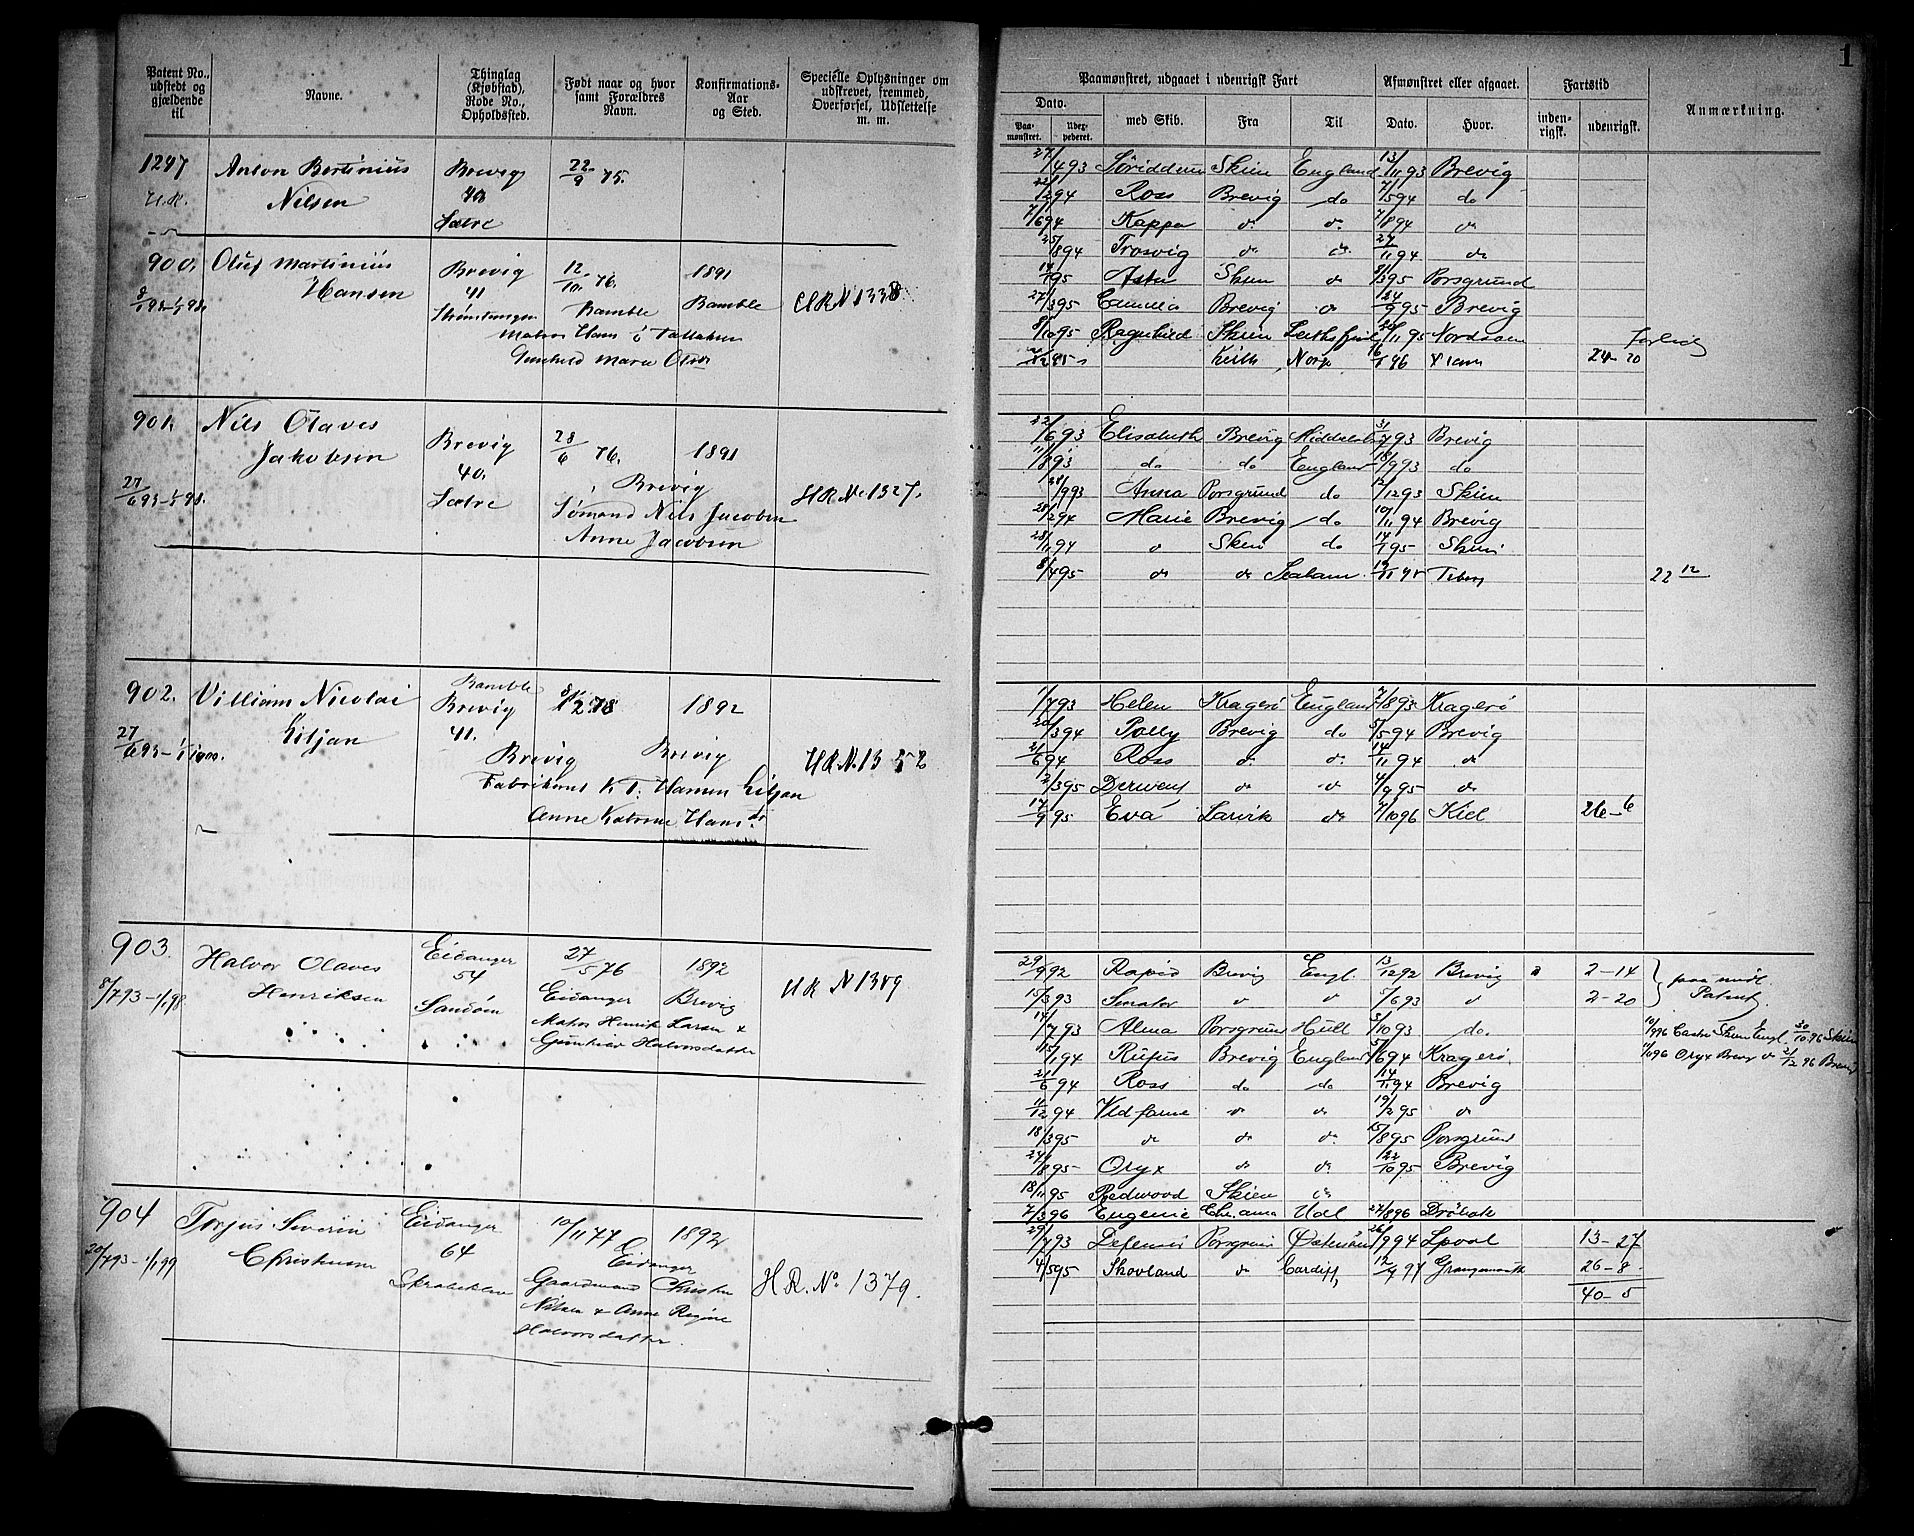 1
Patent No., udstedt og gjældende til
Navne.
Thinglag (Kjøbstad), Rode No., Opholdssted.
Født naar og hvor samt Forældres Navn.
Konfirmations-Aar og Sted.
Specielle Oplysninger om udskrevet, fremmed, Overførsel, Udslettelse m. m.
Paamønstret, udgaaet i udenrigsk Fart
Afmønstret eller afgaaet.
Fartstid
Anmærkning.
Dato.
med Skib.
Fra
Til
Dato.
Hvor.
inden-rigsk.
udenrigsk.
Paa-mønstret.
1247 Anton Bertinius Brevig 22/9 75.
U.R. Nilsen 40
Sætre
900. Oluf Martinius Brevig 12/10 76. 1891
Hansen 41 Bamble Bamble HR N 1338
Matros Hans
Gunhild Marie Olsdr
901. Nils Olaves Brevig 28/6 76. 1891
Jakobsen 40. Brevig HR No 1327.
27/6 93 – 1/1 98. Sætre Sømand Nils Jacobsen
Anne Jacobsen
Bamble
902. Villiam Nicolai Brevig 1892
Liljan 41. Brevig Brevig HR N. 1352
27/6 93 – 1/1 1900.
Hansen Liljan
Anne Hansdr
903. Halvor Olaves Eidanger 27/5 76 1892
Henriksen 54 Eidanger Brevig HR N 1389
8/7 93 – 1/1 98 Sandøen Matros Henrik Larsen &
Halvorsdatter
904 Torjus Severin Eidanger 10/11 77 1892
Christensen 64 Eidanger
20/7 93 – 1/1 99 Gaardmand Christen HR. No. 1379.
Nilsen & Anne Regine
Halvorsdatter.
27/4 93 Skien England 13/11 93 Brevig
22/2 94 Ross Brevig do 7/5 94 do
7/6 94 Kappa do do 7/8 94 do
25/8 94 Trosvig do do 27/11 94 do
Skien do Porsgrund
27/3 95 Camilla Brevig do 24/9 95 Brevig
8/10 95 Ragnhild Skien
Leith Norge 24 – 20
22/6 93 Elisabeth Brevig 31/7 93 Brevig
11/8 93 do do England 18/9 93 do
Anna Porsgrund do 12/12 93 Skien
28/2 94 Marie Brevig do 10/11 94 Brevig
28/11 94 do Skien do 14/1 95 Skien
8/4 95 do do Seaham 22 12
1/7 93 Helen Kragerø England 7/8 93 Kragerø
20/3 94 Polly Brevig do 5/5 94 Brevig
21/6 94 Ross do do 14/11 94 do
2/3 95 Derwent do do 4/9 95 do
17/9 95 Eva Larvik do 7/10 96 Kiel 26 – 6
29/9 92 Rapid Brevig Engl. 13/12 92 Brevig 2 – 14
15/3 93 Senator do do 5/6 93 do 2 – 20 Patent.
14/7 93 Alma Porsgrund Hull 5/10 93 do.
15/1 94 Rufus Brevig England 5/6 94 Kragerø.
10/9 96 Castor Skien Engl. 30/10 96 Skien
11/10 96 Oryx Brevig do 2/12 96 Brevig
21/6 94 Ross do do 14/11 94 Brevig
11/12 94 Vidfarne do do 19/2 95 do
18/3 95 do do do 15/8 95 Porsgrund
24/8 95 Oryx do do 22/10 95 Brevig
18/11 95 Redwood Skien do
7/3 96 Eugenie Chr.ania 27/8 96 Drøbak
29/7 93 Defensor Porsgrund 26/9 94 Lpool 13 – 27
4/5 95 Skovland do Cardiff 26 – 8
40 – 5